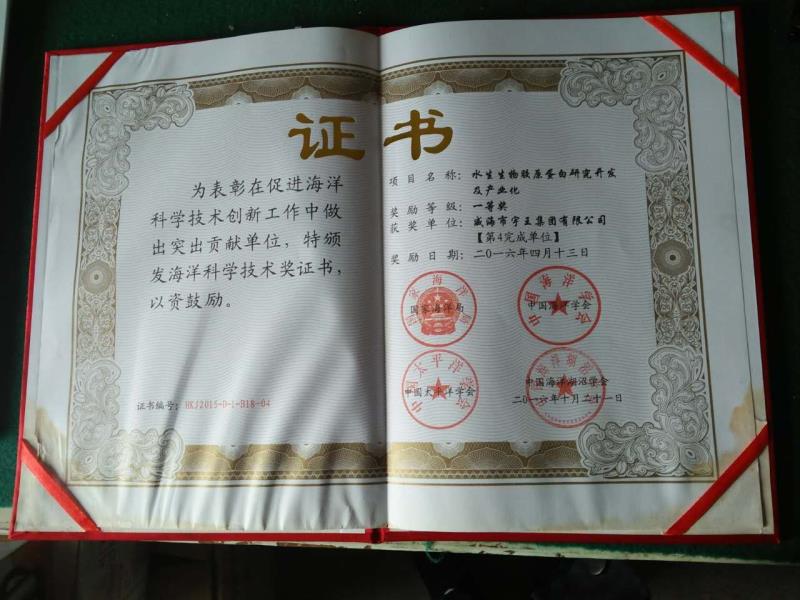 证书
为表彰在促进海洋
科学技术创新工作中做
出突出贡献单位，特颁
发海洋科学技术奖证书，
以资鼓励。
证书编号：HKJ2015-D-1-B18-04
项目名称：水生生物胶原蛋白研究开发
及产业化
奖励等级：一等奖
获奖单位：威海市宇王集团有限公司
【第4完成单位】
奖励日期：二〇一六年四月十三日
国家海洋局
国家海洋局
中国海洋学会
中国海洋学会
中国太平洋学会
中国太平洋学会
中国海洋湖沼学会
二〇一六年十月二十一日